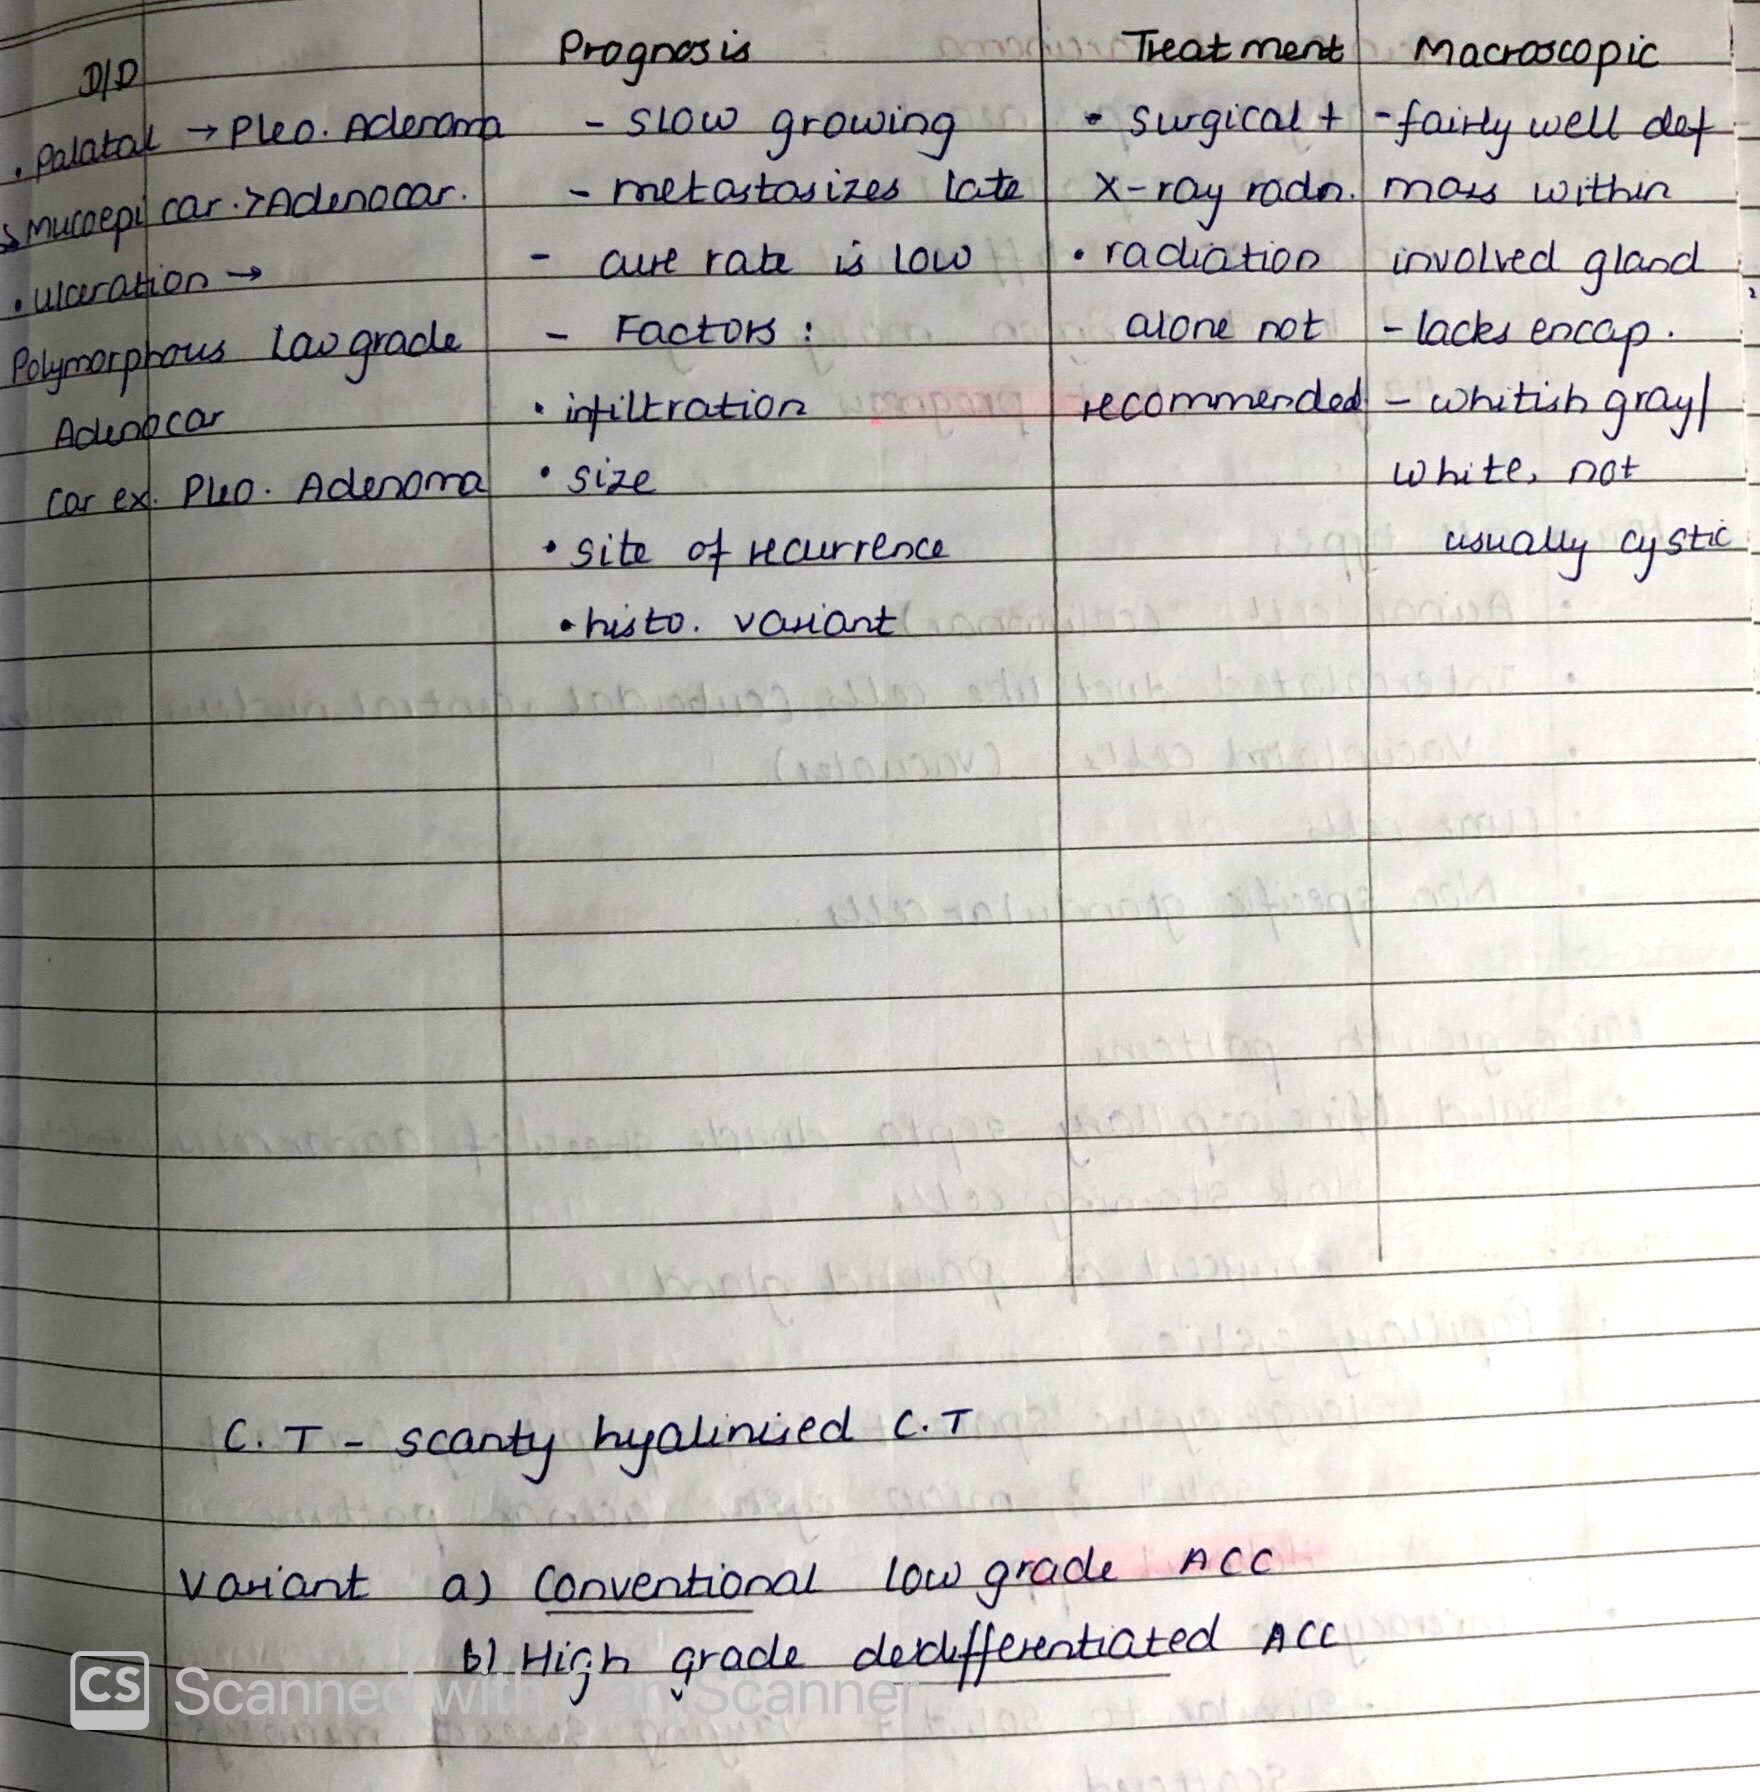 D/D
• Palatal → Pleo. Adenoma
↳ Mucoepi car. > Adenocar.
• ulceration →
Polymorphous Low grade
Adenocar
Car ex. Pleo. Adenoma
Prognosis
- slow growing
- metastasizes late
- cure rate is low
- Factors :
• infiltration
• size
• site of recurrence
• histo. variant
Treatment
• surgical +
X-ray radn.
• radiation
alone not
recommended
Macroscopic
- fairly well def
mass within
involved gland
- lacks encap.
- whitish gray/
white, not
usually cystic
C. T - scanty hyalinised C.T
Variant a) Conventional low grade ACC
b) High grade dedifferentiated ACC
CS Scanned with CamScanner